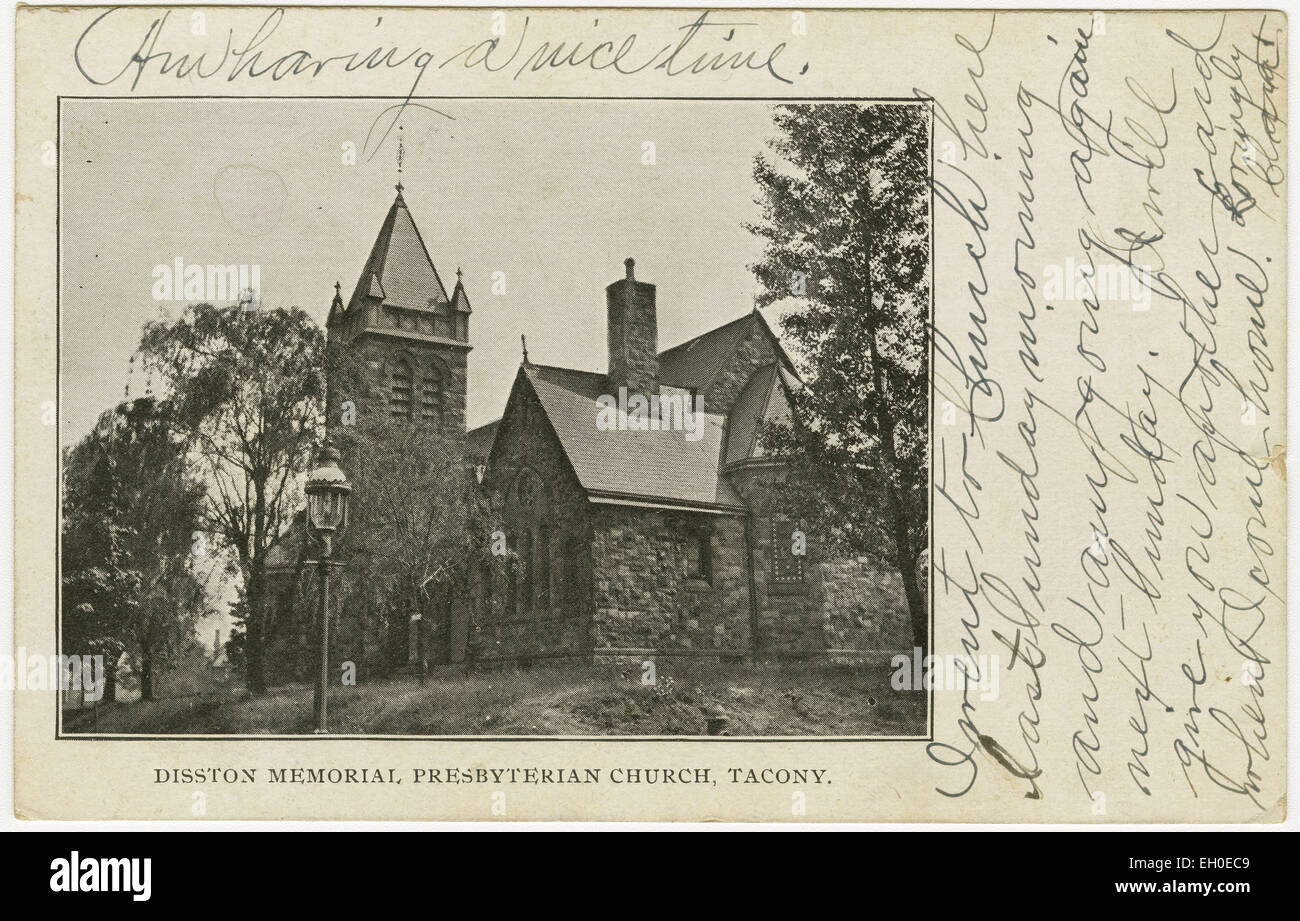 Am having a nice time.
I went to church here
last Sunday morning
and am going again
next Sunday. I will
give you another card
when I come home. Lovingly
DISSTON MEMORIAL PRESBYTERIAN CHURCH, TACONY.
alamy
alamy stock photo
EH0EC9
www.alamy.com